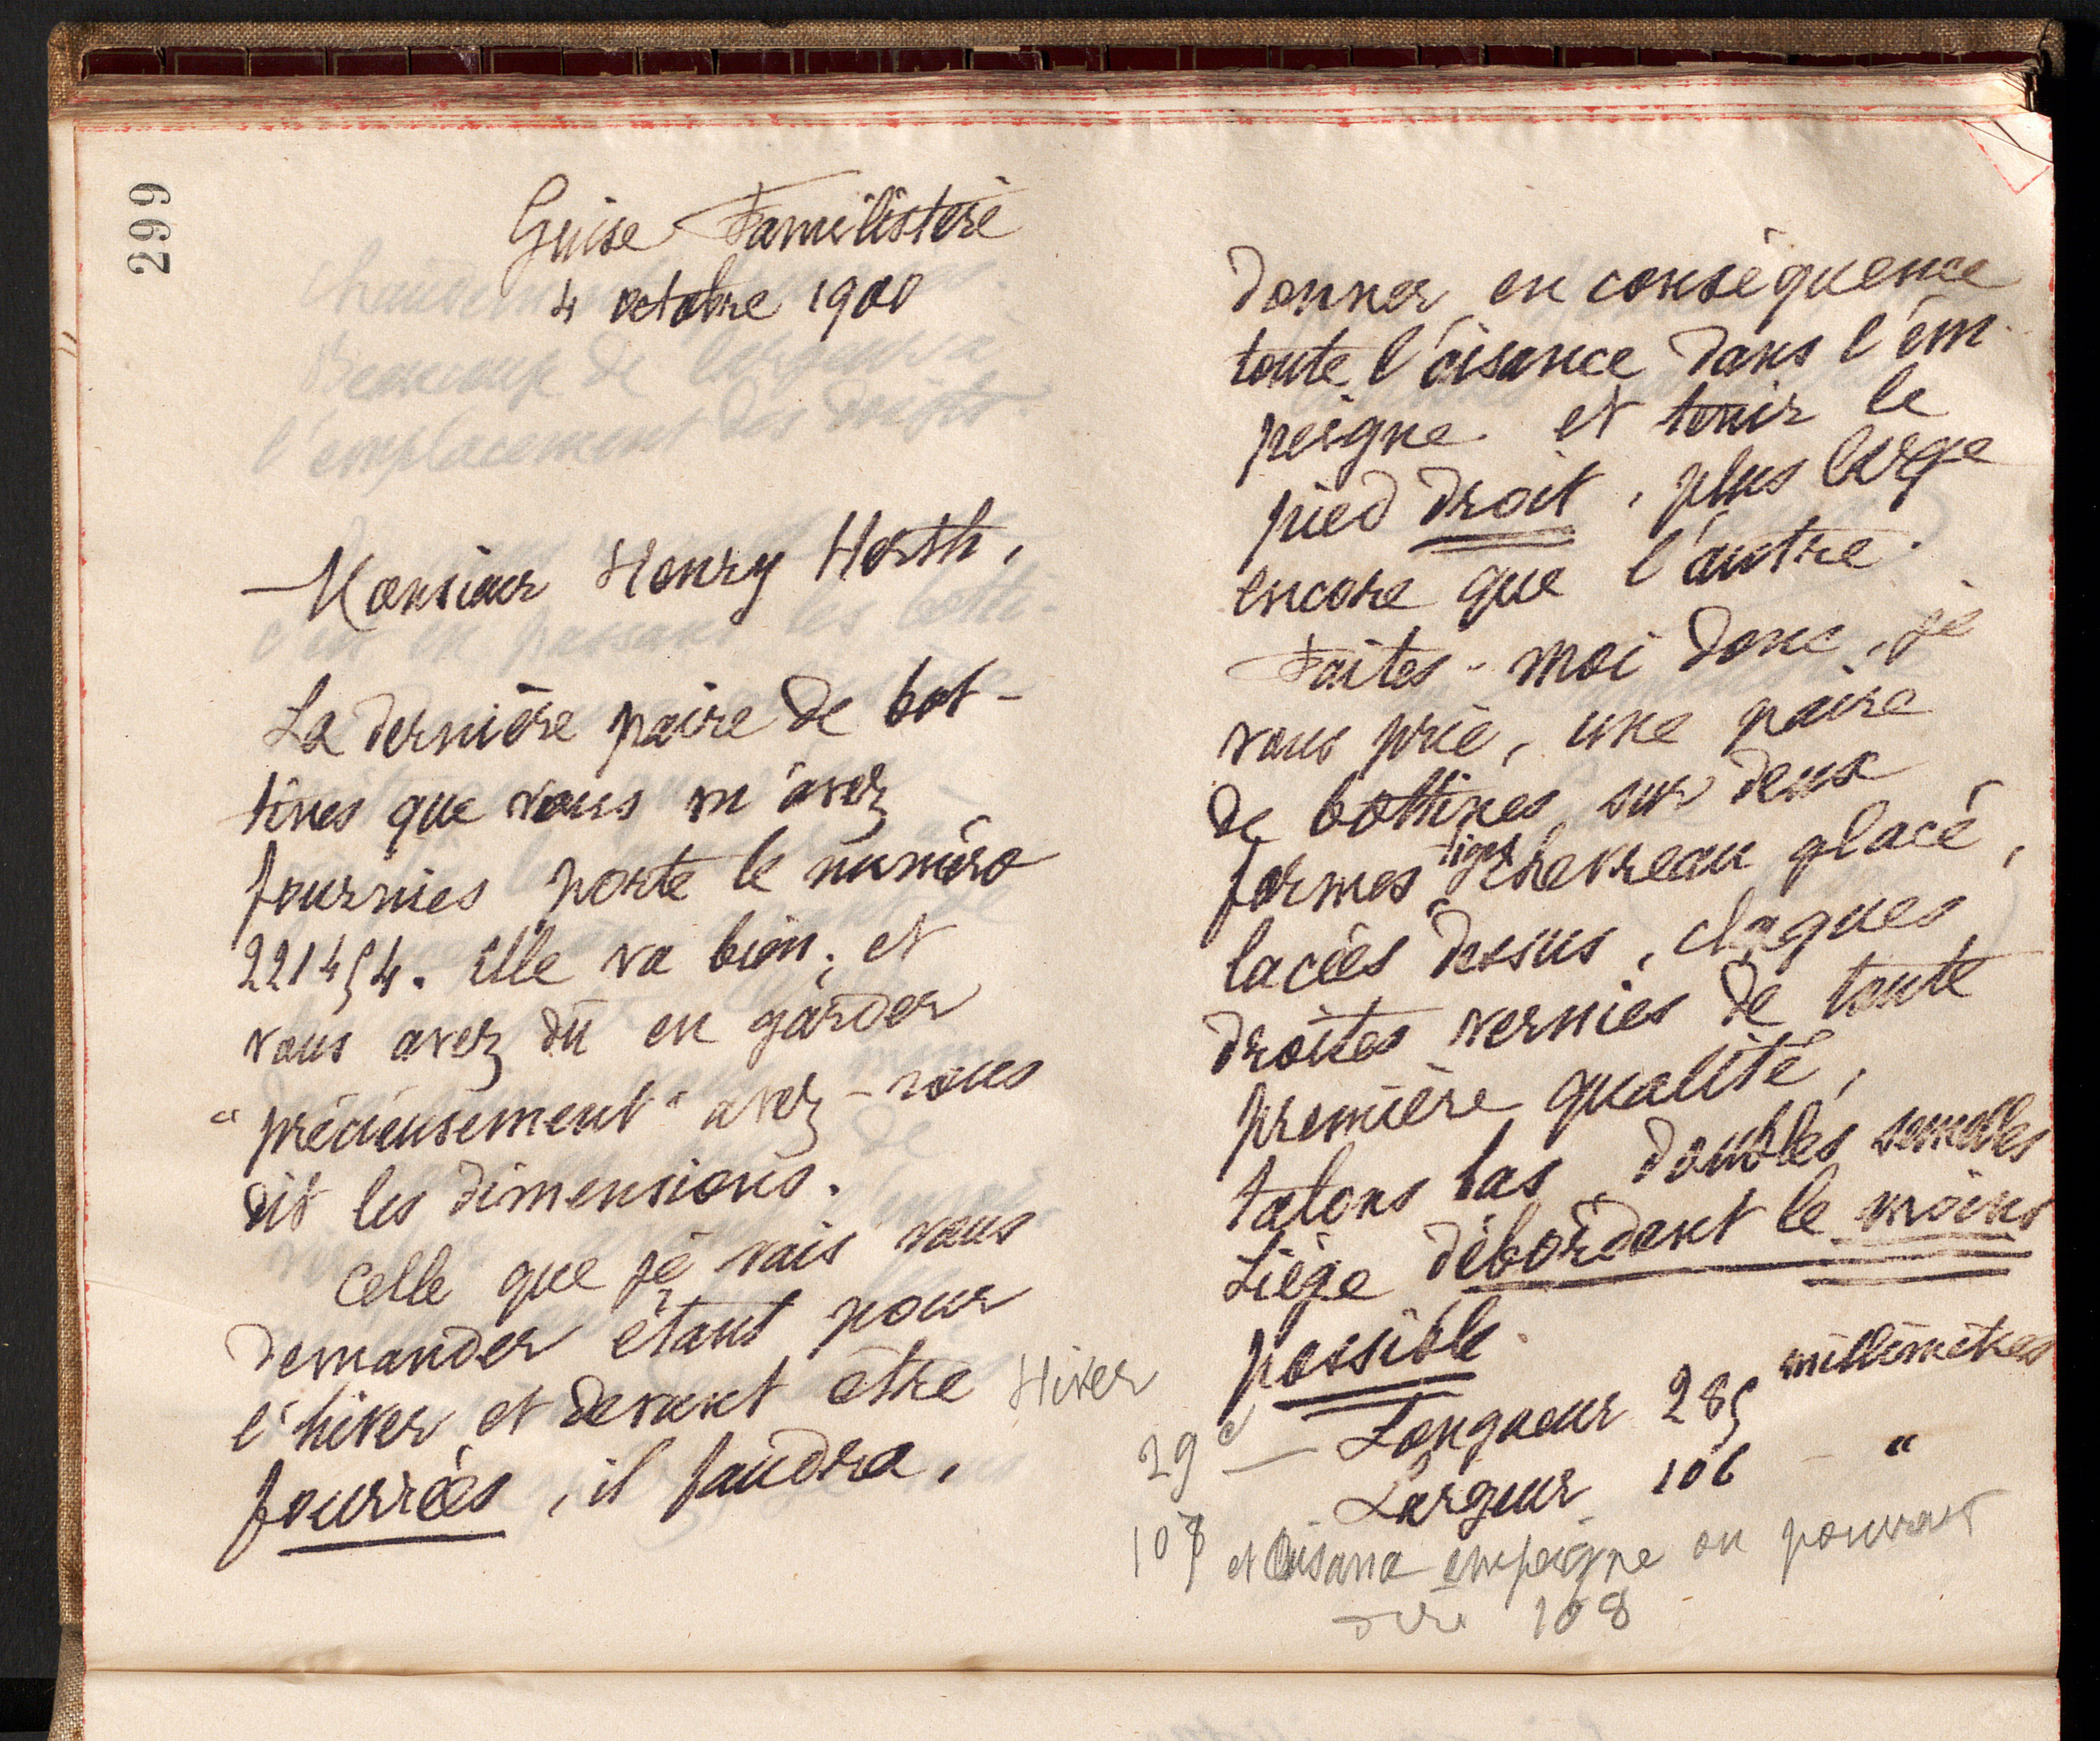 299
Guise Familistère
4 octobre 1900
Monsieur Henry Horth,
La dernière paire de bot-
tines que vous m'avez
fournies porte le numéro
221454. Elle va bien; et
vous avez dû en garder
"précieusement" avez-vous
dit les dimensions.
Celle que je vais vous
demander étant pour
l'hiver et devant être
fourrées, il faudra,
donner en conséquence
toute l'aisance dans l'em-
peigne et tenir le
pied droit, plus large
encore que l'autre.
Faites-moi donc, je
vous prie, une paire
de bottines sur deux
formes tiges chevreau glacé,
lacées dessus, claques
droites vernies de toute
première qualité,
talons bas, doubles semelles
Liège débordant le moins
possible.
Hiver
29 c — Longueur 285 millimètres
Largeur 106 – "
107 et aisance empeigne on pourrait
dire 108